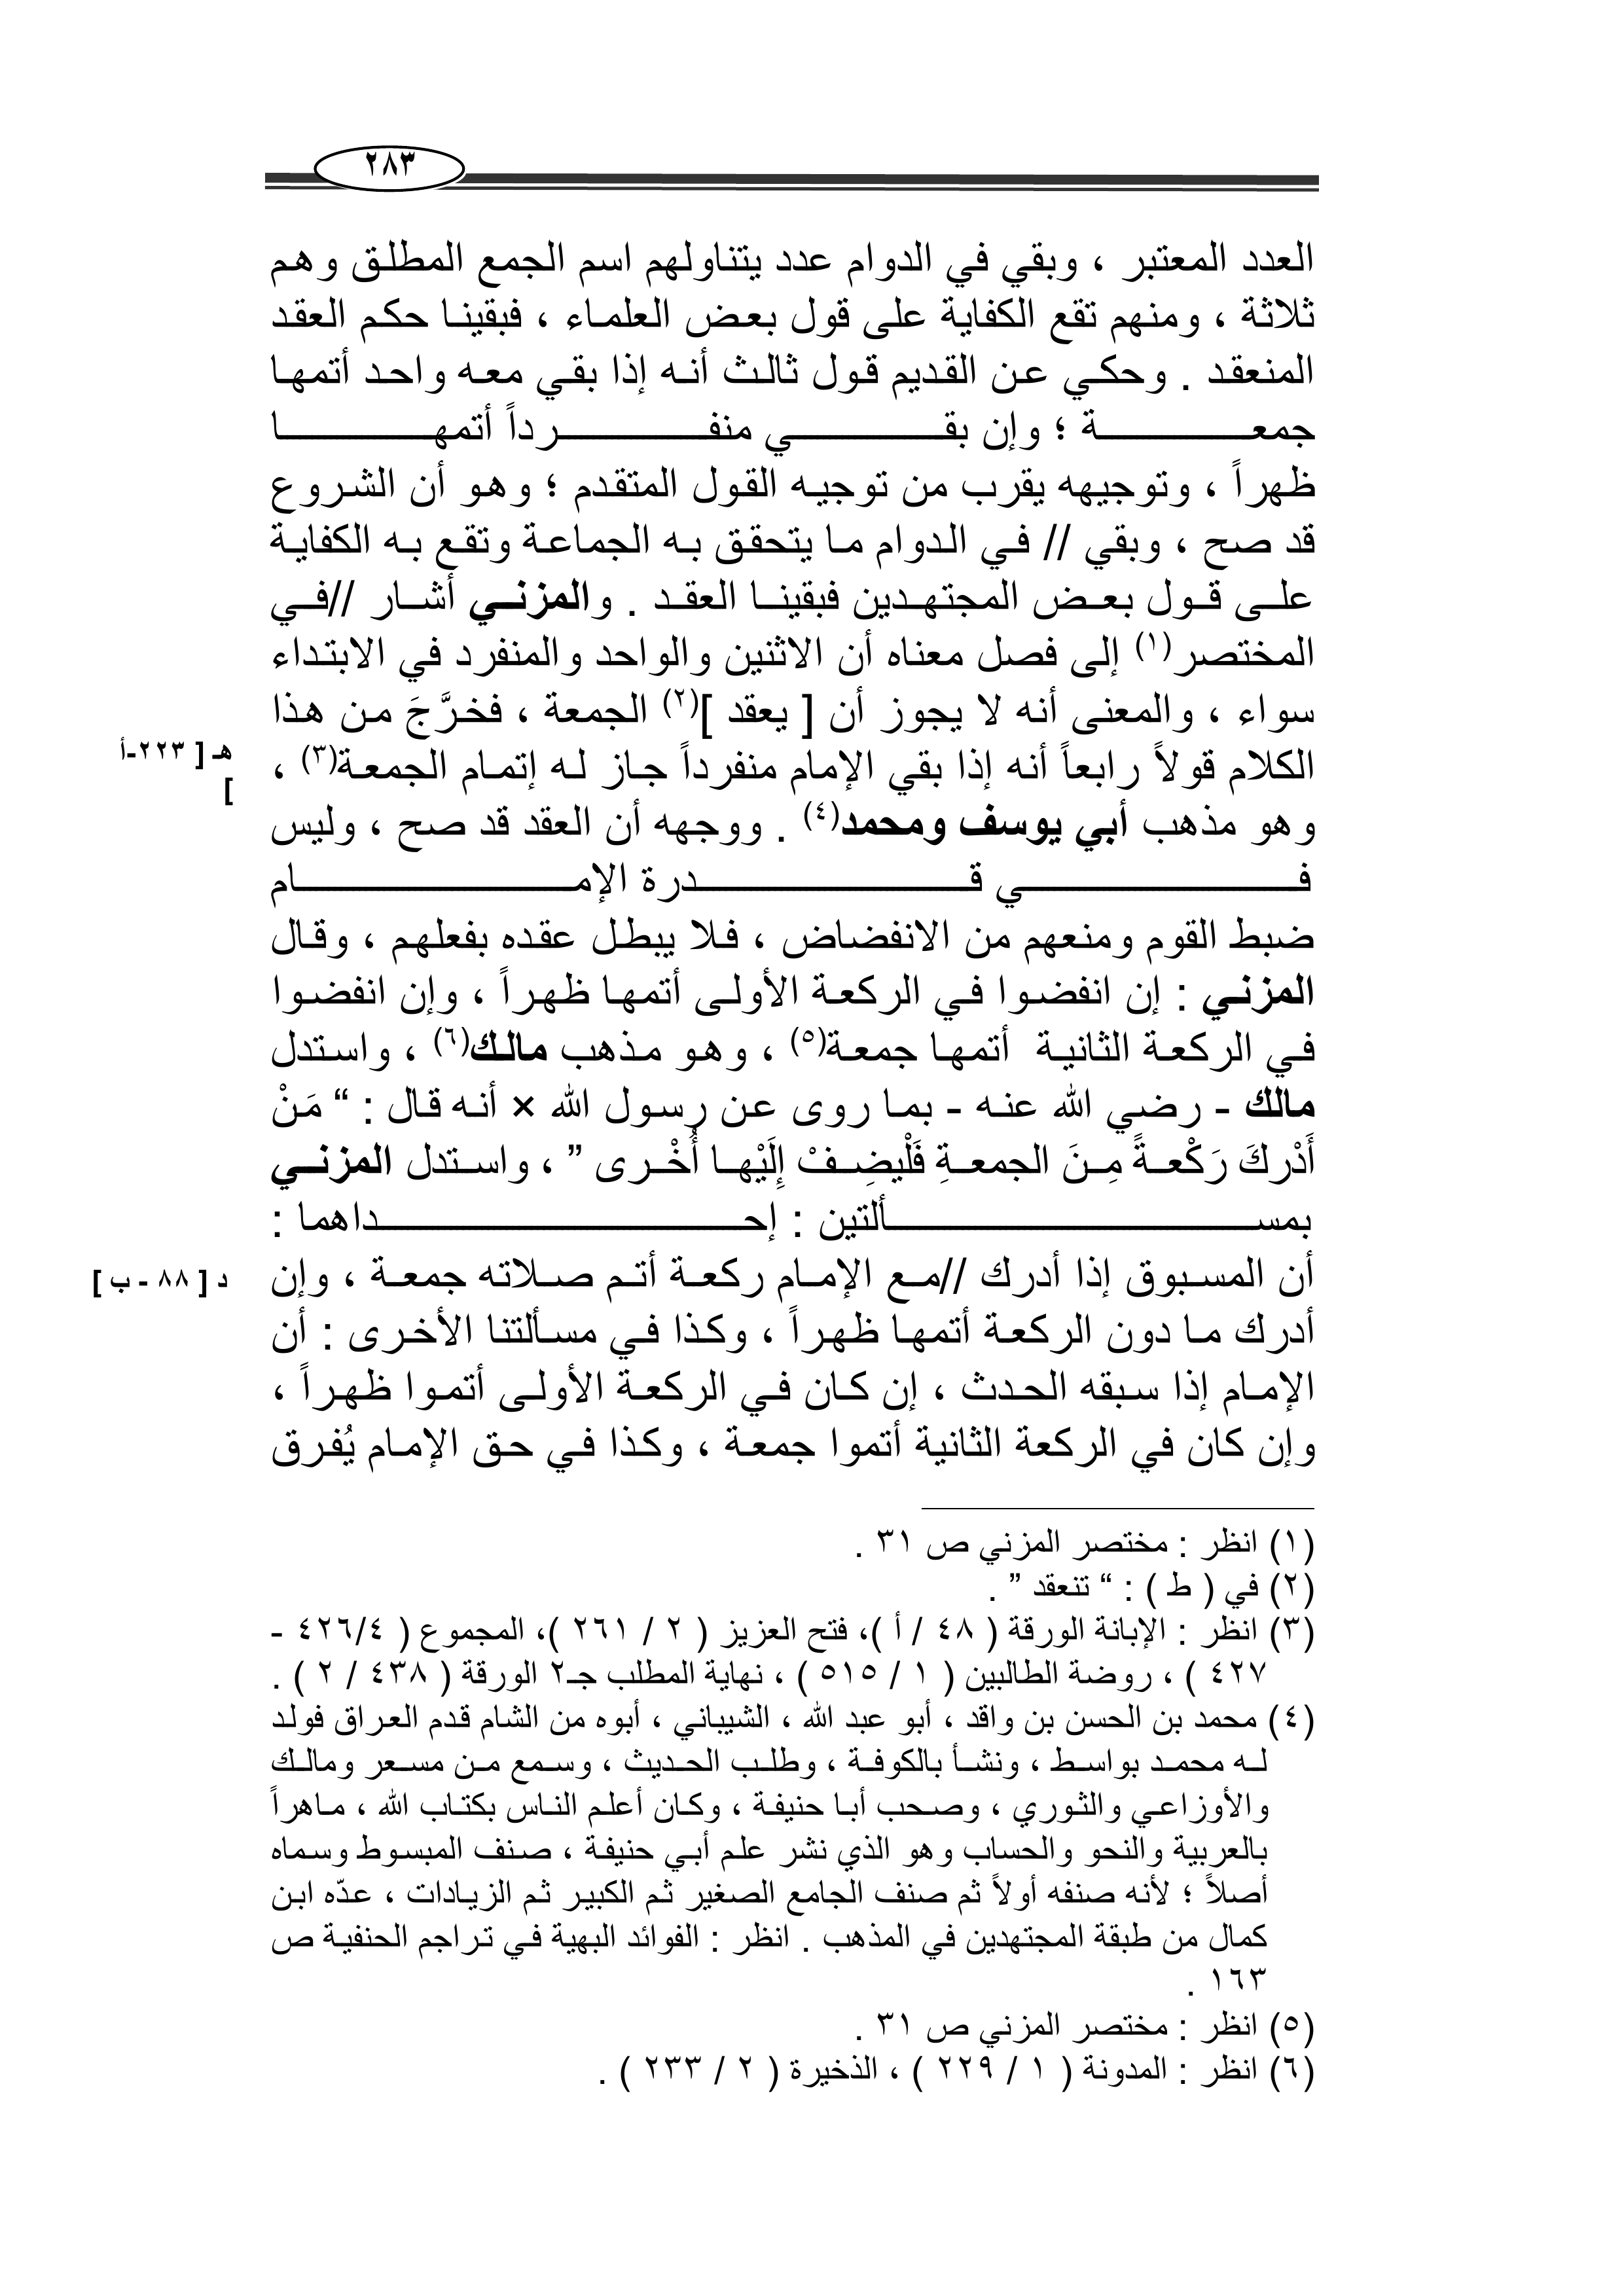 ٢٨٣
العدد المعتبر ، وبقي في الدوام عدد يتناولهم اسم الجمع المطلق وهم
ثلاثة ، ومنهم تقع الكفاية على قول بعض العلماء ، فبقينا حكم العقد
المنعقد . وحكي عن القديم قول ثالث أنه إذا بقي معه واحد أتمها
جمعة ؛ وإن بقي منفرداً أتمها
ظهراً ، وتوجيهه يقرب من توجيه القول المتقدم ؛ وهو أن الشروع
قد صح ، وبقي // في الدوام ما يتحقق به الجماعة وتقع به الكفاية
على قول بعض المجتهدين فبقينا العقد . والمزني أشار //في
المختصر(١) إلى فصل معناه أن الاثنين والواحد والمنفرد في الابتداء
سواء ، والمعنى أنه لا يجوز أن [ يعقد ](٢) الجمعة ، فخرَّجَ من هذا
الكلام قولاً رابعاً أنه إذا بقي الإمام منفرداً جاز له إتمام الجمعة(٣) ،
هـ [ ٢٢٣-أ
]
وهو مذهب أبي يوسف ومحمد(٤) . ووجهه أن العقد قد صح ، وليس
في قدرة الإمام
ضبط القوم ومنعهم من الانفضاض ، فلا يبطل عقده بفعلهم ، وقال
المزني : إن انفضوا في الركعة الأولى أتمها ظهراً ، وإن انفضوا
في الركعة الثانية أتمها جمعة(٥) ، وهو مذهب مالك(٦) ، واستدل
مالك - رضي الله عنه - بما روى عن رسول الله × أنه قال : “ مَنْ
أَدْركَ رَكْعةً مِنَ الجمعةِ فَلْيضِفْ إِلَيْها أُخْرى ” ، واستدل المزني
بمسألتين : إحداهما :
أن المسبوق إذا أدرك //مع الإمام ركعة أتم صلاته جمعة ، وإن
د [ ٨٨ - ب ]
أدرك ما دون الركعة أتمها ظهراً ، وكذا في مسألتنا الأخرى : أن
الإمام إذا سبقه الحدث ، إن كان في الركعة الأولى أتموا ظهراً ،
وإن كان في الركعة الثانية أتموا جمعة ، وكذا في حق الإمام يُفرق
(١) انظر : مختصر المزني ص ٣١ .
(٢) في ( ط ) : “ تنعقد ” .
(٣) انظر : الإبانة الورقة ( ٤٨ / أ )، فتح العزيز ( ٢ / ٢٦١ )، المجموع ( ٤/‏٤٢٦ -
٤٢٧ ) ، روضة الطالبين ( ١ / ٥١٥ ) ، نهاية المطلب جـ٢ الورقة ( ٤٣٨ / ٢ ) .
(٤) محمد بن الحسن بن واقد ، أبو عبد الله ، الشيباني ، أبوه من الشام قدم العراق فولد
له محمد بواسط ، ونشأ بالكوفة ، وطلب الحديث ، وسمع من مسعر ومالك
والأوزاعي والثوري ، وصحب أبا حنيفة ، وكان أعلم الناس بكتاب الله ، ماهراً
بالعربية والنحو والحساب وهو الذي نشر علم أبي حنيفة ، صنف المبسوط وسماه
أصلاً ؛ لأنه صنفه أولاً ثم صنف الجامع الصغير ثم الكبير ثم الزيادات ، عدّه ابن
كمال من طبقة المجتهدين في المذهب . انظر : الفوائد البهية في تراجم الحنفية ص
١٦٣ .
(٥) انظر : مختصر المزني ص ٣١ .
(٦) انظر : المدونة ( ١ / ٢٢٩ ) ، الذخيرة ( ٢ / ٢٣٣ ) .